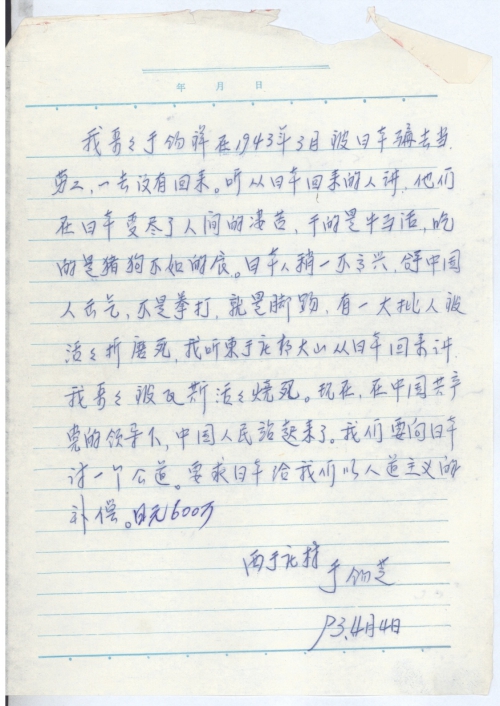 年 月 日
我哥々于钧祥在1943年3月被日本骗去当
劳工,一去没有回来。听从日本回来的人讲,他们
在日本受尽了人间的凄苦,干的是牛马活,吃
的是猪狗不如的食。日本人稍一不高兴,拿中国
人出气,不是拳打,就是脚踢,有一大批人被
活々折磨死,我听东于家大山从日本回来讲
我哥々被瓦斯活々烧死。现在,在中国共产
党的领导下,中国人民站起来了。我们要向日本
讨一个公道。要求日本给我们以人道主义的
补偿。日元600万
西于家村
于钧芝
93.4月4日